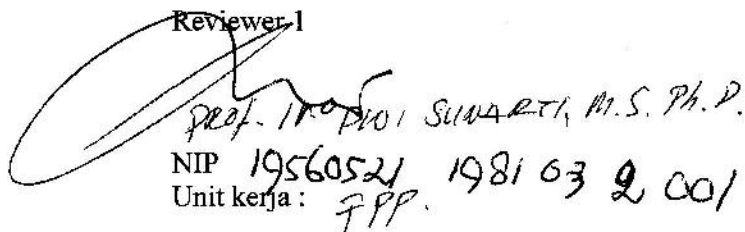 Reviewer 1
Prof. Ir. Dwi Sunarti, M.S. Ph.D.
NIP 19560521 1981 03 2 001
Unit kerja : FPP.